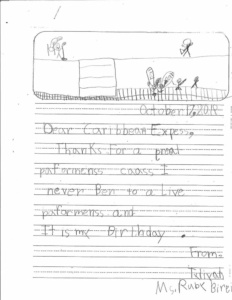 October 17, 2014
Dear Caribbean Express,
Thanks For a great
paformenss caass I
never Ben to a Live
paformenss and
It is my Birthday .
From:
Ms. Ruby